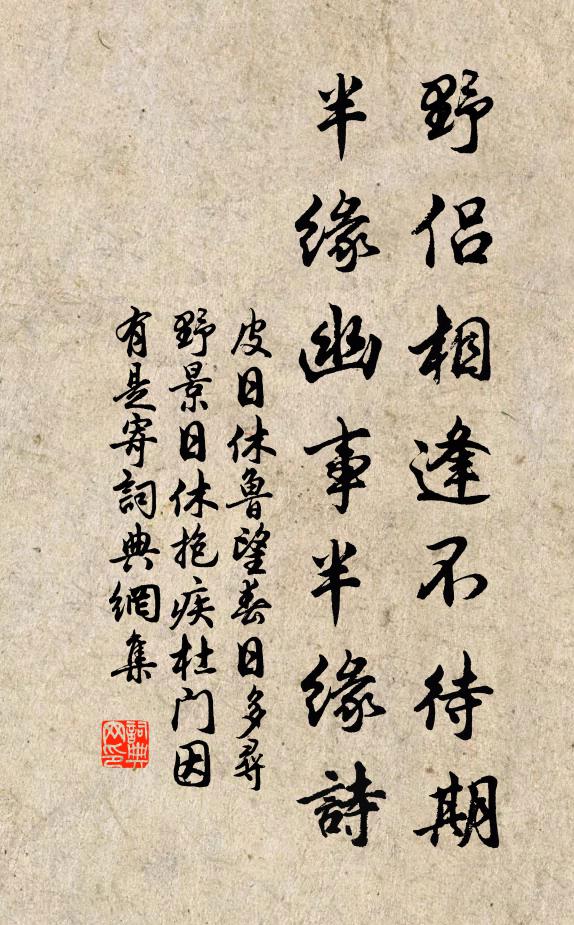 野侶相逢不待期
半緣幽事半緣詩
皮日休魯望春日多尋
野景日休抱疾杜门因
有是寄詞典網集
詞典網印